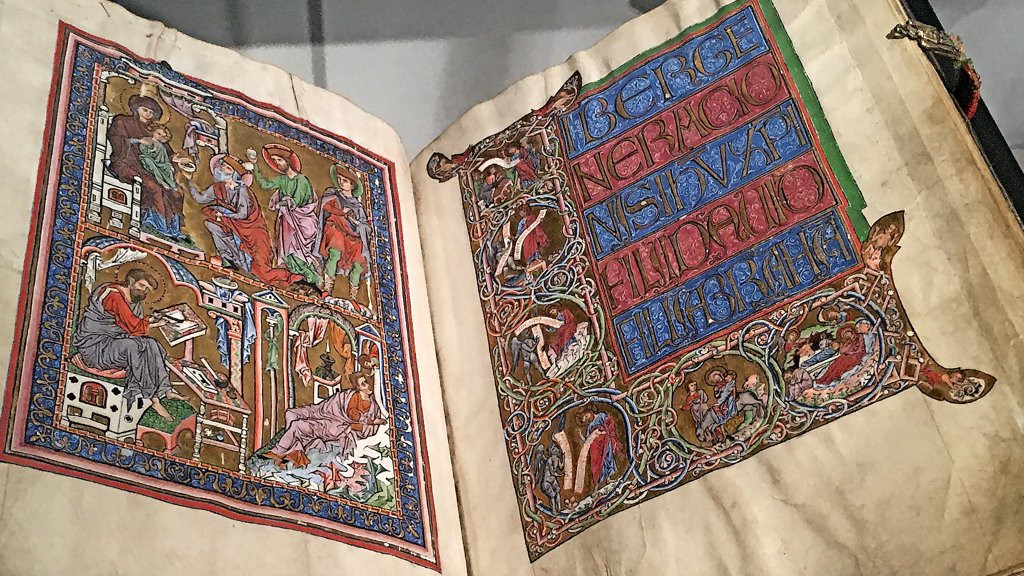 LIBER GE
NERACIO
NIS IHV XPI
FILII DAUID
FILII ABRAHA